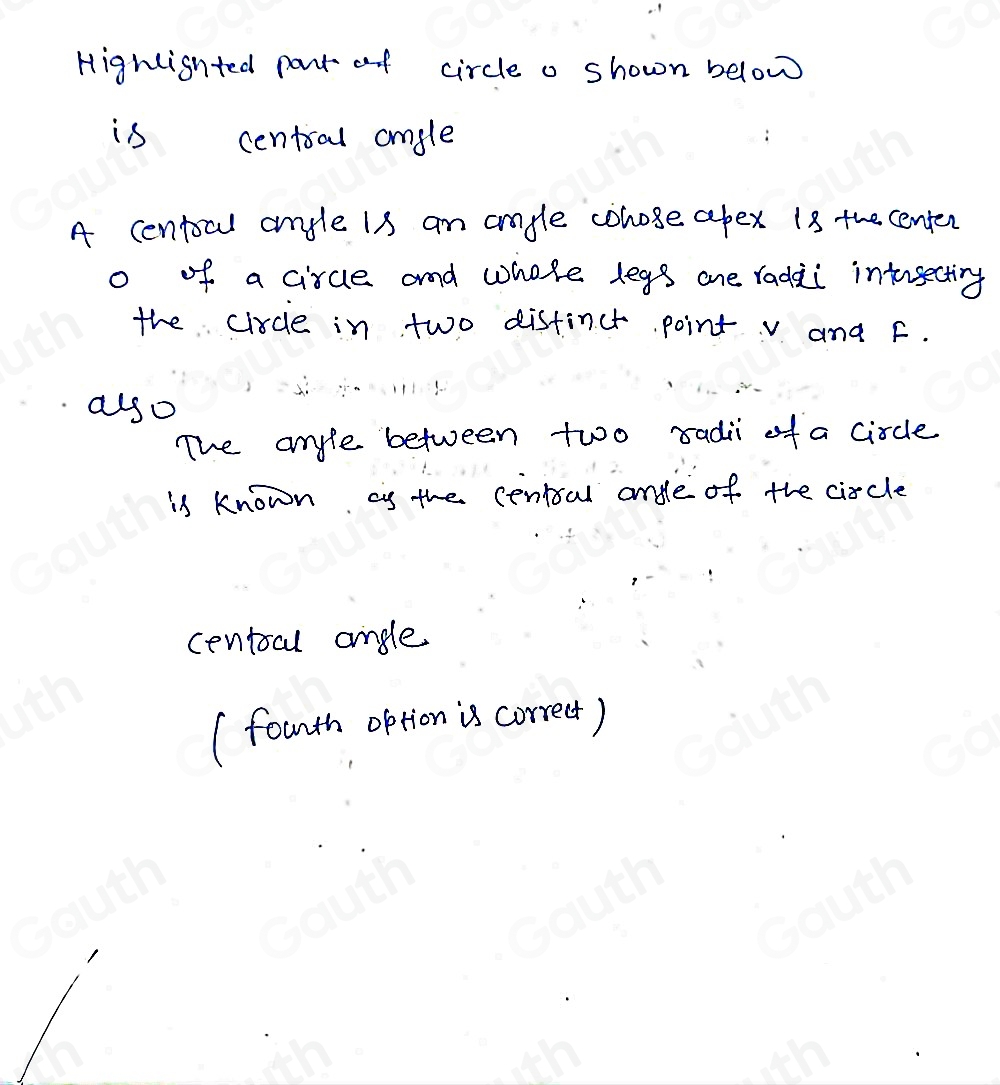 Highlighted part of circle o shown below
is central angle
A central angle is an angle whose apex is the center
O of a circle and whose legs are radii intersecting
the circle in two distinct point V and F.
also
The angle between two radii of a circle
is known as the central angle of the circle
central angle
(fourth option is correct)
Gauth